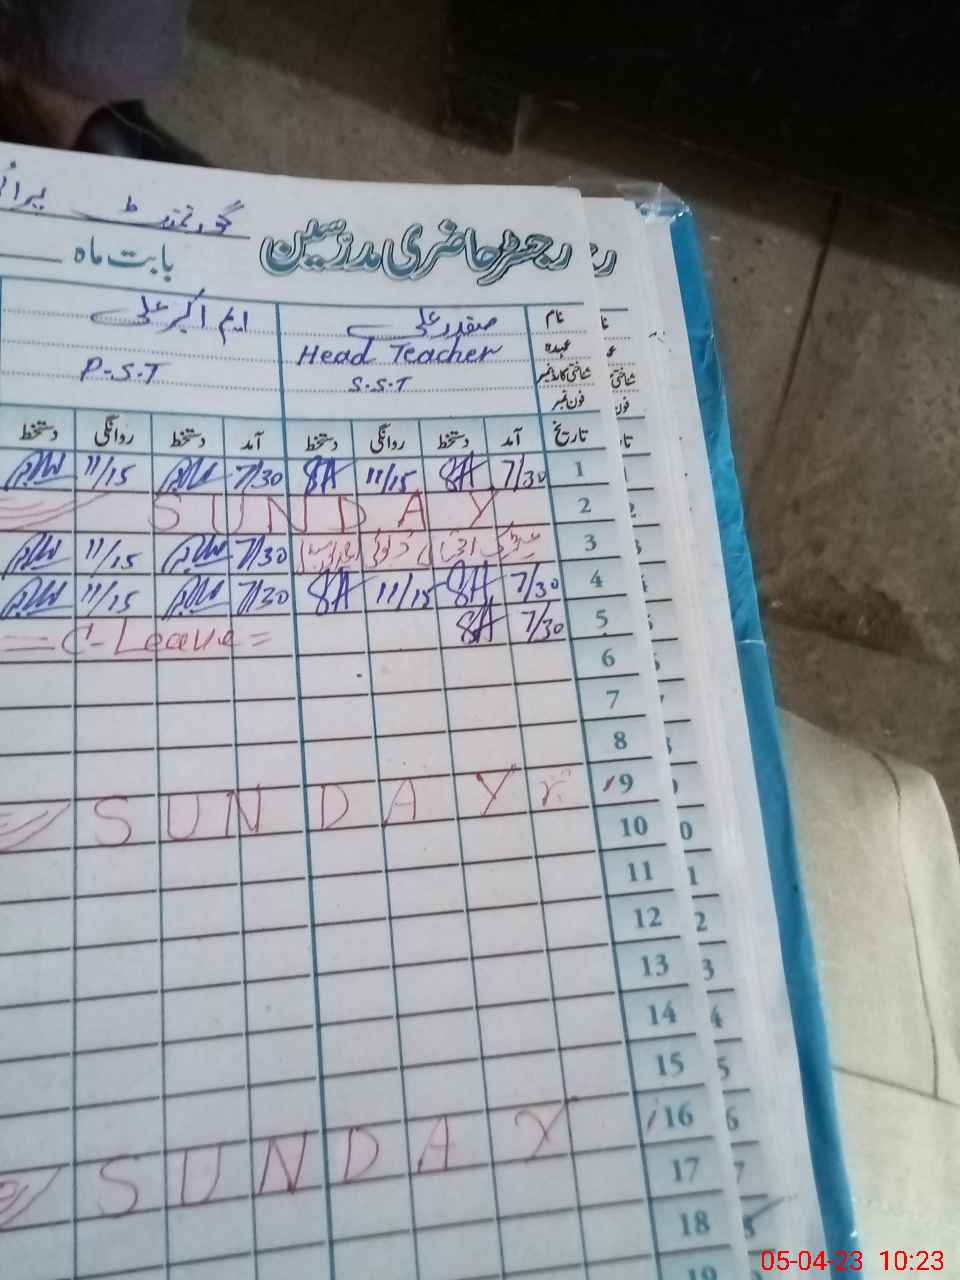 گورنمنٹ
رجسٹر حاضری مدرسین بابت ماہ
نام صفدر علی ایم اکبر علی
عہدہ Head Teacher
شناختی کارڈ نمبر S.S.T P-S-T
فون نمبر
تاریخ آمد دستخط روانگی دستخط آمد دستخط روانگی دستخط
1 7/30 SA 11/15 SA 7/30 11/15
2 SUNDAY
3 7/30 11/15
4 7/30 SA 11/15 SA 7/30 11/15
5 7/30 SA = C-Leave =
6
7
8
9 SUNDAY
10
11
12
13
14
15
16 SUNDAY
17
18
19
05-04-23 10:23